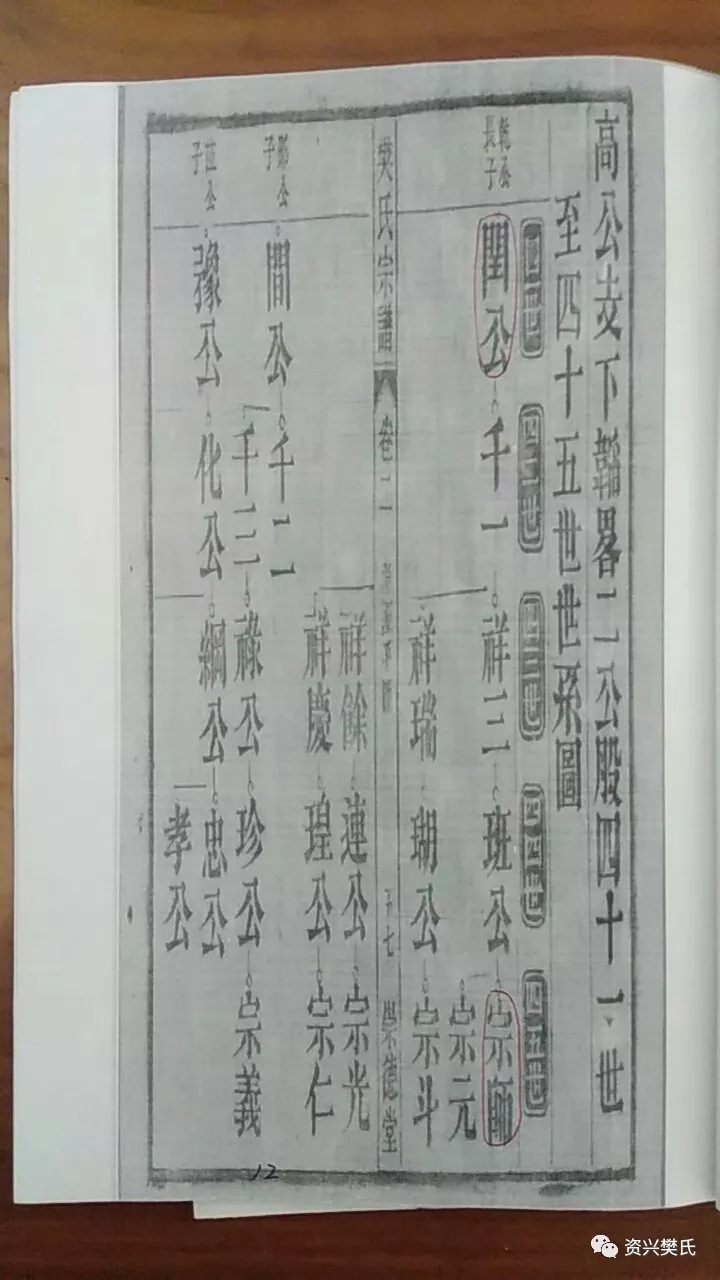 高公支下韜畧二公股四十一世
至四十五世世系圖
四十一世
四十二世
四十三世
四十四世
四十五世
乾公
長子
閏公 千一 祥三 班公 宗師
宗元
祥瑞 瑚公 宗斗
樊氏宗譜 卷二 五七 崇德堂
祥餘 連公 宗光
祥慶 瑝公 宗仁
子
間公 千二
千三 祿公 珍公 宗義
子
豫公 化公 綱公 忠公
孝公
12
资兴樊氏